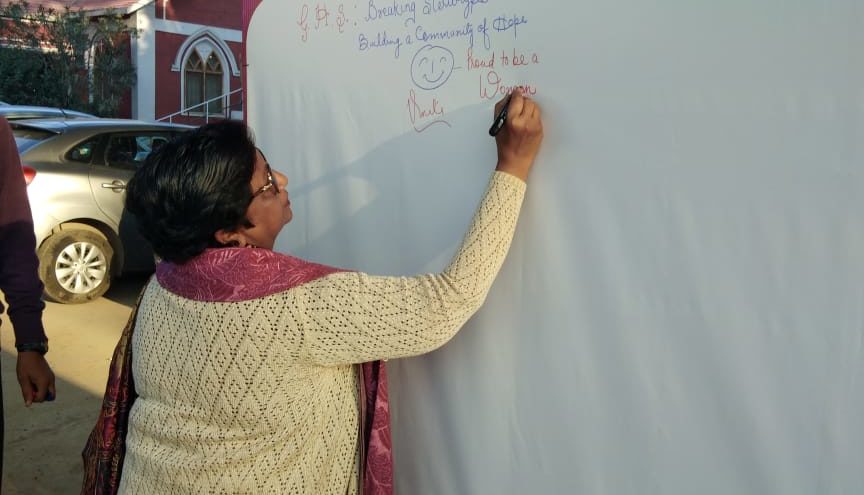 G.H.S. : Breaking Stereotypes
Building a Community of Hope
Proud to be a
Woman